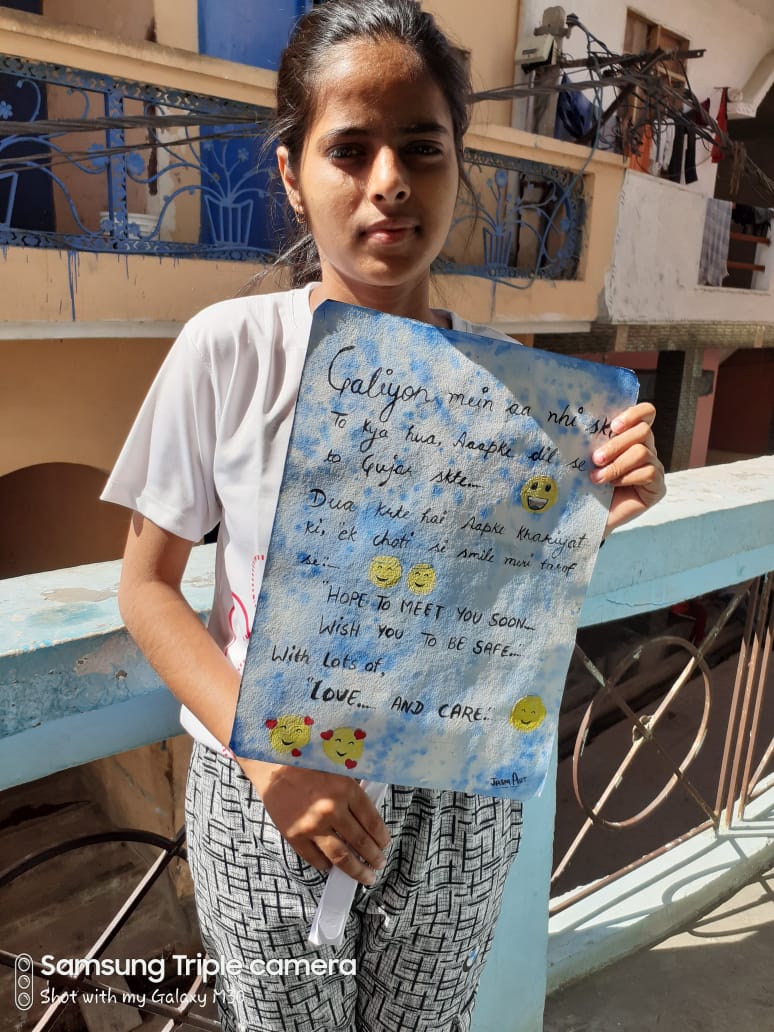 Galiyon mein aa nhi skte
To kya hua, Aaapke dil se
to Gujar skte...
Dua krte hai Aapke khariyat
ki, ek choti si smile meri taraf
se:-...
"HOPE TO MEET YOU SOON...
WISH YOU TO BE SAFE...
With Lots of,
"LOVE... AND CARE."
Samsung Triple camera
Shot with my Galaxy M30